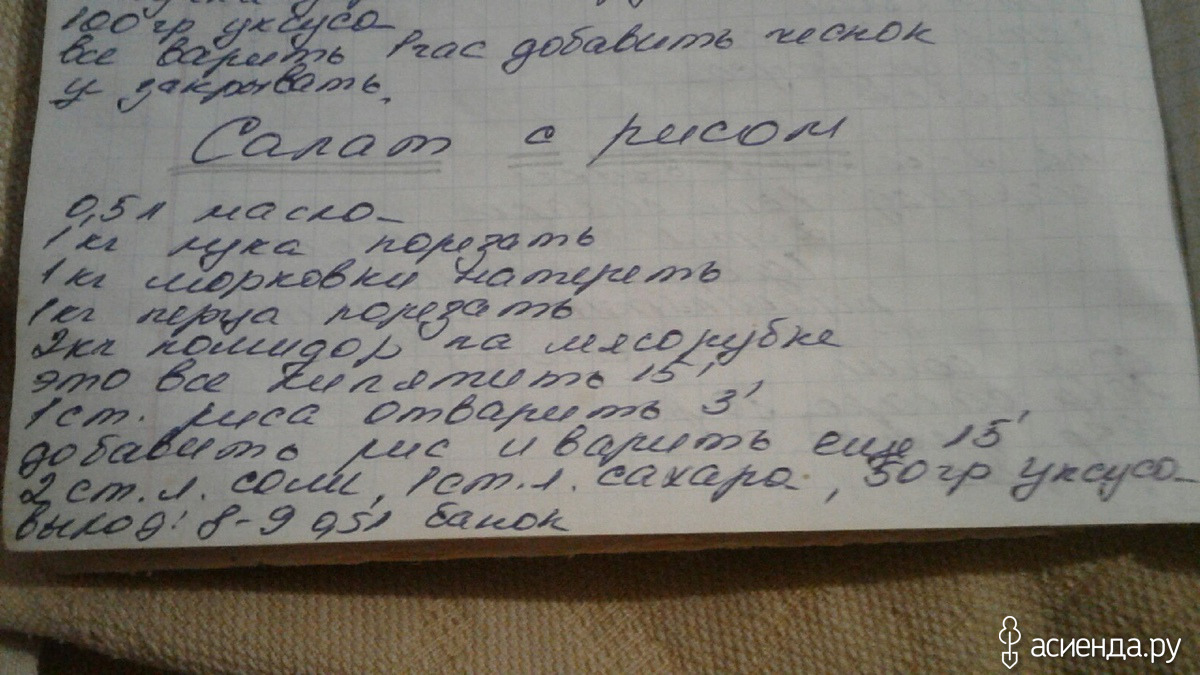 100гр уксуса
все варить 1час добавить чеснок
и закрывать.
Салат с рисом
0,5л масла
1кг лука порезать
1кг морковки натереть
1кг перца порезать
2кг помидор на мясорубке
это все кипятить 15'
1ст. риса отварить 3'
добавить рис и варить еще 15'
2ст.л. соли, 1ст.л. сахара, 50гр уксуса
выход: 8-9 0,5л банок
асиенда.ру